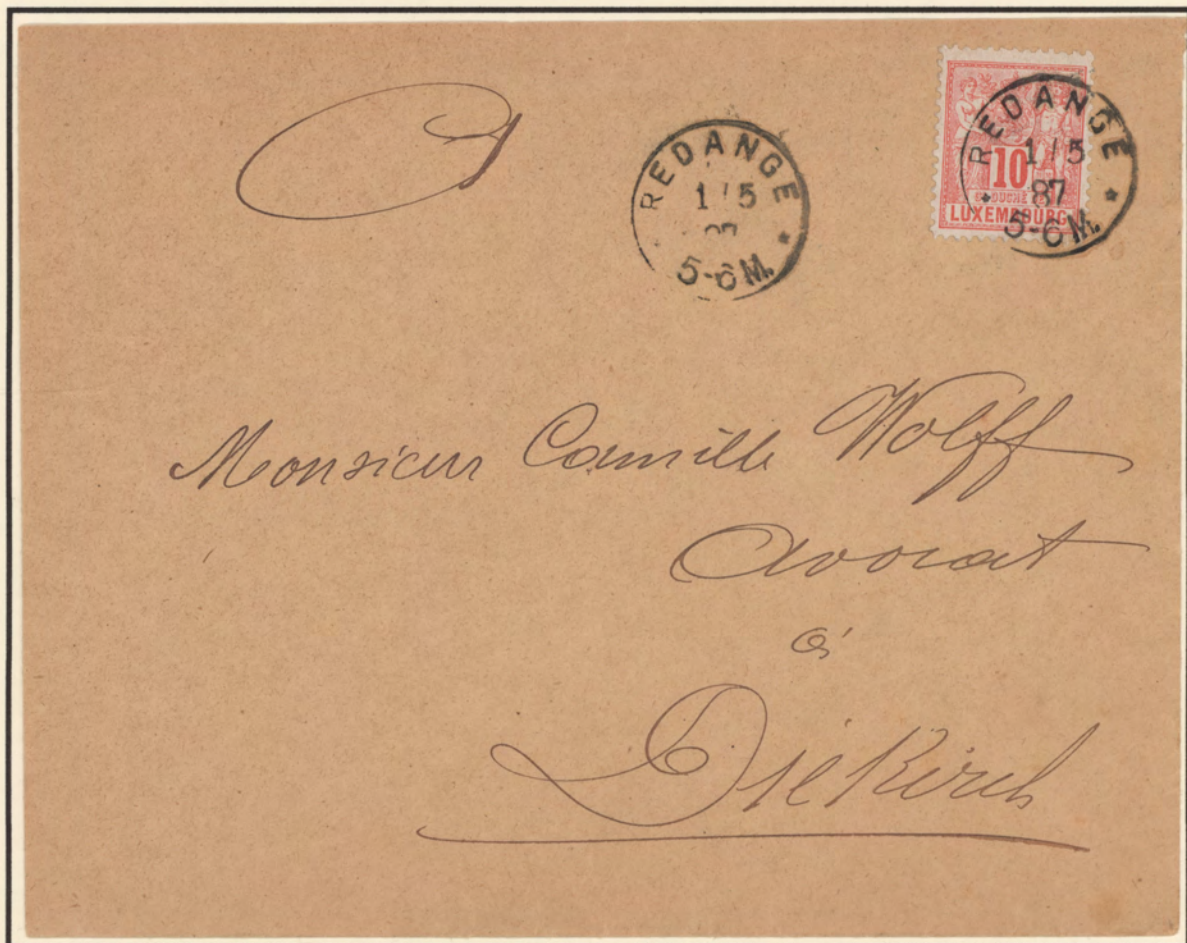 REDANGE
1/5
87
5-6 M.
REDANGE
1/5
5-6 M.
10
LUXEMBOURG
Monsieur Camille Wolff
Avocat
à
Diekirch